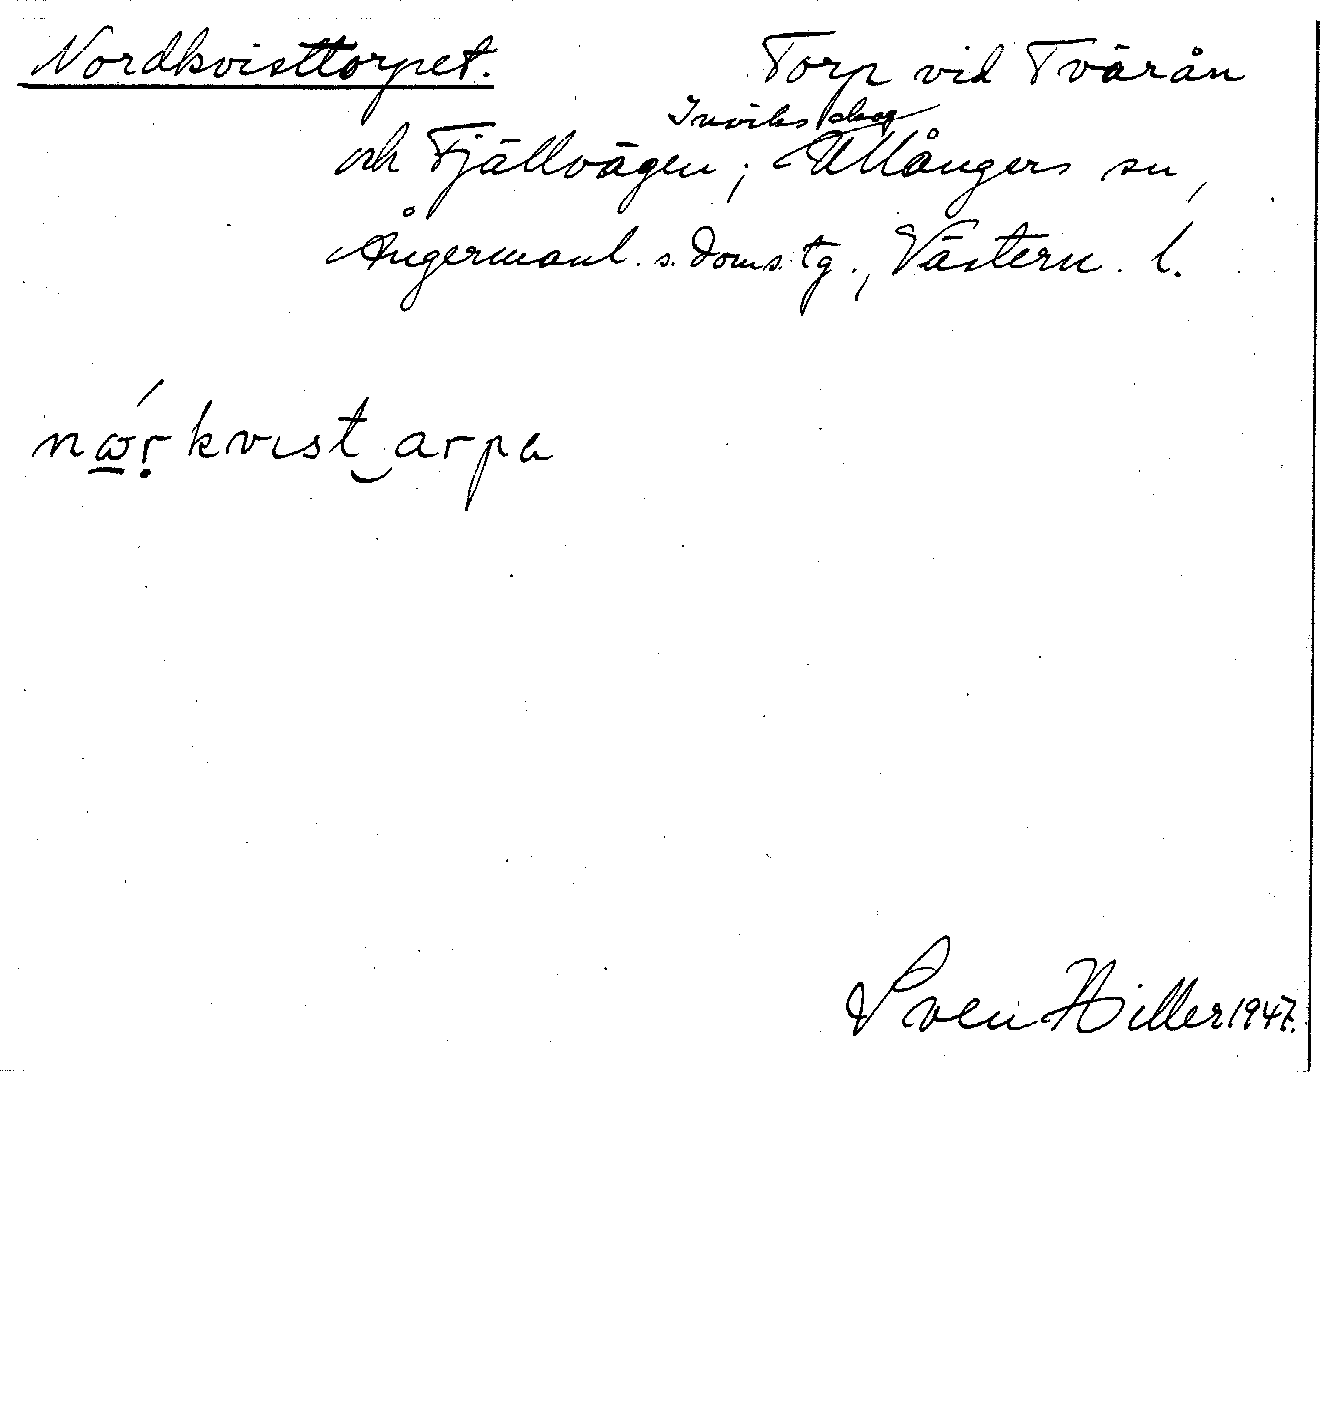 Nordkvisttorpet. Torp vid Tvärån
Inviks skog
och Fjällvägen; Ullångers sn,
Ångermanl. s. doms. tg., Västern. l.
nώ̱ṛkvist‿arpa
Sven Hiller 1947.